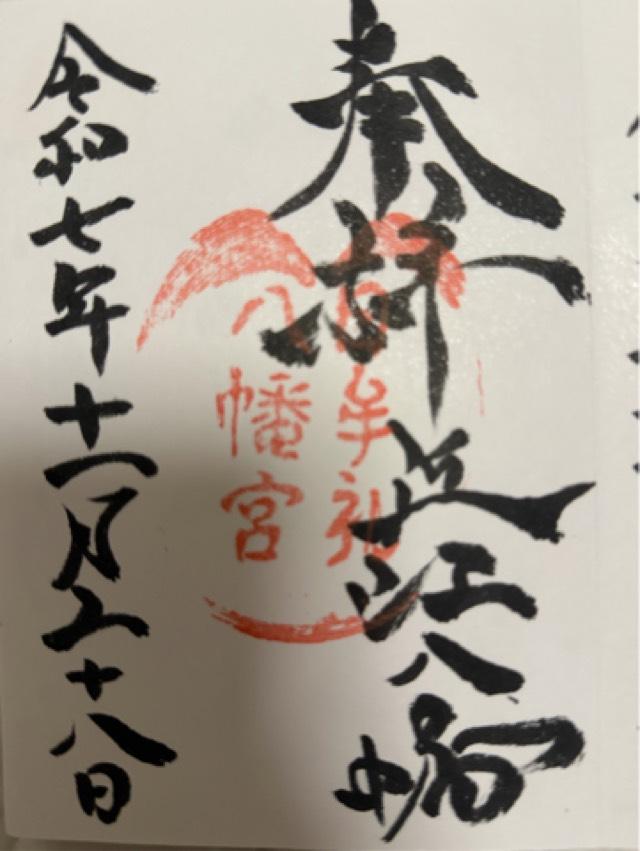 奉拝
近江八幡
日牟礼
八幡宮
令和七年十一月二十八日